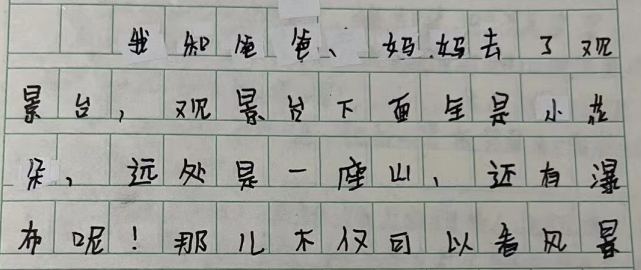 我和爸爸、妈妈去了观
景台，观景台下面全是小花
朵，远处是一座山，还有瀑
布呢！那儿不仅可以看风景